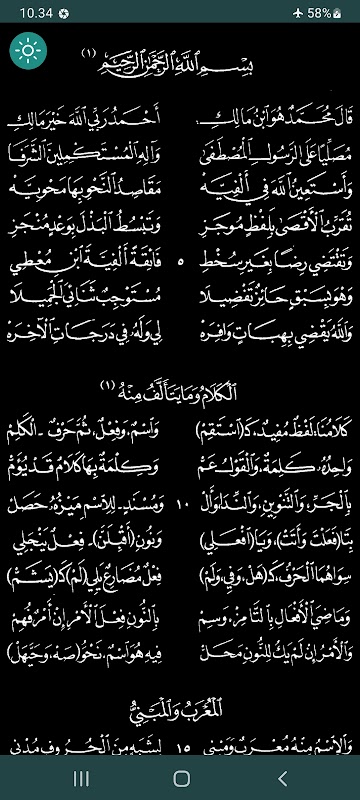 10.34 58%
بِسْمِ اللَّهِ الرَّحْمَنِ الرَّحِيمِ (١)
قَالَ مُحَمَّدٌ هُوَ ابْنُ مَالِكِ أَحْمَدُ رَبِّي اللَّهَ خَيْرَ مَالِكِ
مُصَلِّيًا عَلَى الرَّسُولِ الْمُصْطَفَى وَآلِهِ الْمُسْتَكْمِلِينَ الشَّرَفَا
وَأَسْتَعِينُ اللَّهَ فِي أَلْفِيَّهْ مَقَاصِدُ النَّحْوِ بِهَا مَحْوِيَّهْ
تُقَرِّبُ الْأَقْصَى بِلَفْظٍ مُوجَزِ وَتَبْسُطُ الْبَذْلَ بِوَعْدٍ مُنْجَزِ
وَتَقْتَضِي رِضًا بِغَيْرِ سُخْطِ ٥ فَائِقَةً أَلْفِيَّةَ ابْنِ مُعْطِي
وَهْوَ بِسَبْقٍ حَائِزٌ تَفْضِيلَا مُسْتَوْجِبٌ ثَنَائِيَ الْجَمِيلَا
وَاللَّهُ يَقْضِي بِهِبَاتٍ وَافِرَهْ لِي وَلَهُ فِي دَرَجَاتِ الْآخِرَهْ
الْكَلَامُ وَمَا يَتَأَلَّفُ مِنْهُ (١)
كَلَامُنَا: لَفْظٌ مُفِيدٌ، كَـ(اسْتَقِمْ) وَاسْمٌ، وَفِعْلٌ، ثُمَّ حَرْفٌ - الْكَلِمْ
وَاحِدُهُ: كَلِمَةٌ، وَالْقَوْلُ عَمّْ وَكِلْمَةٌ بِهَا كَلَامٌ قَدْ يُؤَمّْ
بِالْجَرِّ، وَالتَّنْوِينِ، وَالنِّدَا، وَأَلْ ١٠ وَمُسْنَدٍ - لِلِاسْمِ مَيْزُهُ حَصَلْ
بِتَا (فَعَلْتَ وَأَتَتْ)، وَيَا (افْعَلِي) وَنُونِ (أَقْبِلَنَّ) - فِعْلٌ يَنْجَلِي
سِوَاهُمَا الْحَرْفُ، كَـ(هَلْ، وَفِي، وَلَمْ) فِعْلٌ مُضَارِعٌ يَلِي (لَمْ) كَـ(يَشَمّْ)
وَمَاضِيَ الْأَفْعَالِ بِالتَّا مِزْ، وَسِمْ بِالنُّونِ فِعْلَ الْأَمْرِ إِنْ أَمْرٌ فُهِمْ
وَالْأَمْرُ إِنْ لَمْ يَكُ لِلنُّونِ مَحَلّْ فِيهِ هُوَ اسْمٌ، نَحْوُ (صَهْ، وَحَيَّهَلْ)
الْمُعْرَبُ وَالْمَبْنِيُّ
وَالِاسْمُ مِنْهُ مُعْرَبٌ وَمَبْنِي ١٥ لِشَبَهٍ مِنَ الْحُرُوفِ مُدْنِي